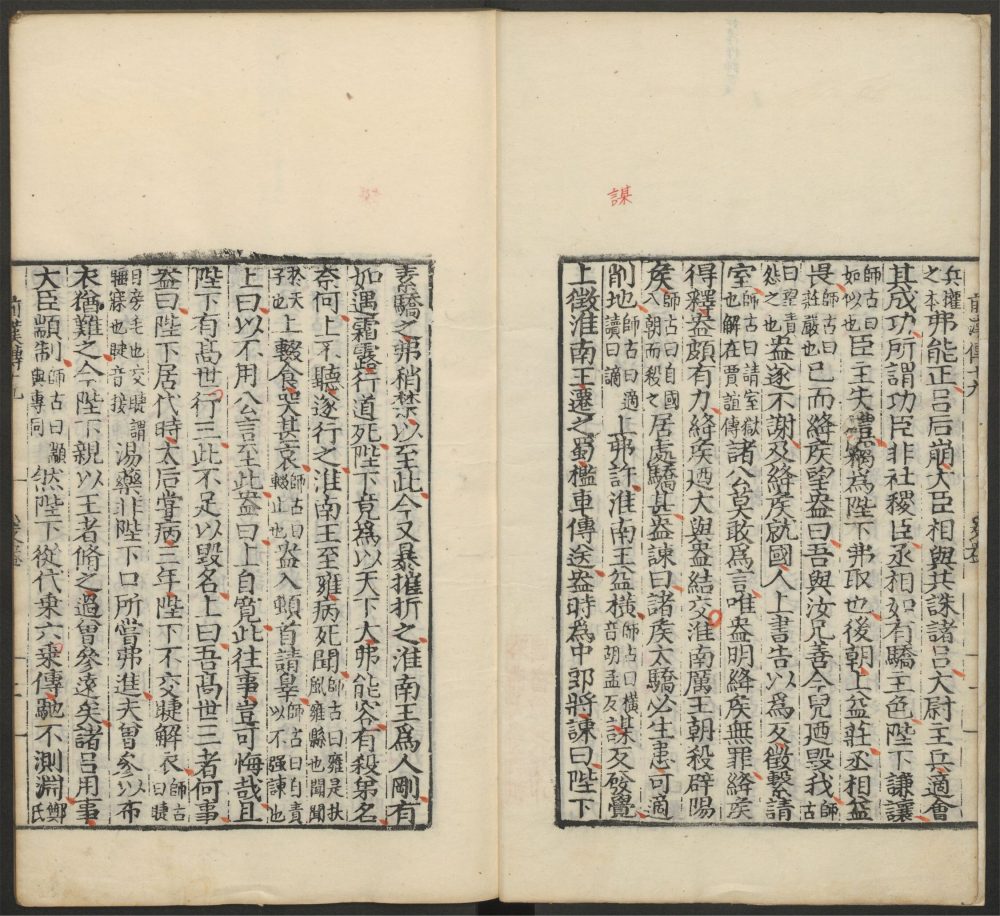 謀
前漢傳十九
兵權之本弗能正呂后崩大臣相與共誅諸呂大尉主兵適會
其成功所謂功臣非社稷臣丞相如有驕主色陛下謙讓
師古曰如似也臣主失禮竊為陛下弗取也後朝上益莊丞相益
畏師古曰莊嚴也已而絳侯望盎曰吾與汝兄善今兒迺毀我師古
曰望責怨之也盎遂不謝及絳侯就國人上書告以為反徵繫請
室師古曰請室獄也解在賈誼傳諸公莫敢為言唯盎明絳侯無罪絳侯
得釋盎頗有力絳侯迺大與盎結交淮南厲王朝殺辟陽
侯師古曰自國入朝而殺之居處驕甚盎諫曰諸侯太驕必生患可適
削地師古曰適讀曰謫上弗許淮南王益橫師古曰橫音胡孟反謀反發覺
上徵淮南王遷之蜀檻車傳送盎時為中郎將諫曰陛下
素驕之弗稍禁以至此今又暴摧折之淮南王為人剛有
如遇霜露行道死陛下竟為以天下大弗能容有殺弟名
奈何上不聽遂行之淮南王至雍病死聞師古曰雍是扶風雍縣也聞聞
於天子也上輟食哭甚哀師古曰輟止也盎入頓首請辠師古曰自責以不强諫也
上曰以不用公言至此盎曰上自寬此往事豈可悔哉且
陛下有高世行三此不足以毀名上曰吾高世三者何事
盎曰陛下居代時太后嘗病三年陛下不交睫解衣師古曰睫
目旁毛也交睫謂寤寐也睫音接湯藥非陛下口所嘗弗進夫曾參以布
衣猶難之今陛下親以王者脩之過曾參遠矣諸呂用事
大臣顓制師古曰顓與專同然陛下從代乘六乘傳馳不測淵鄭氏
前漢傳